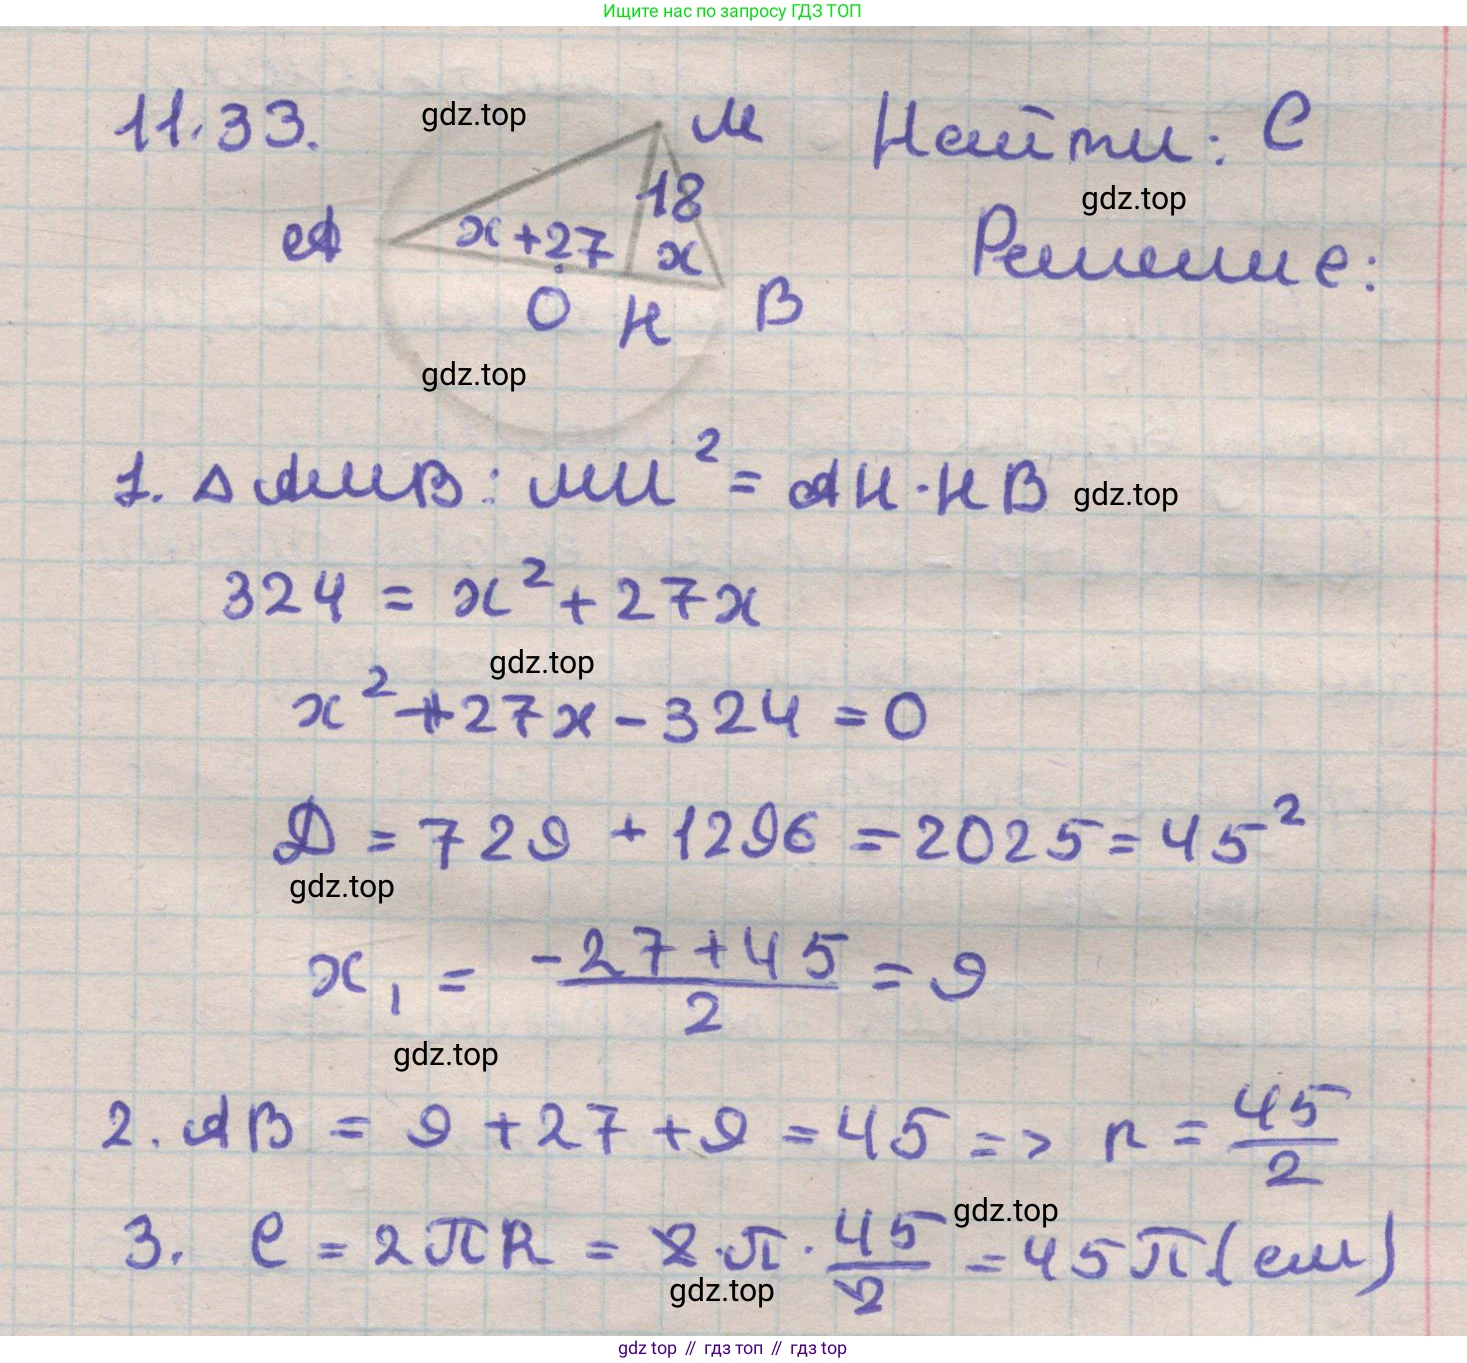 Ищите нас по запросу ГДЗ ТОП
11.33.
gdz.top
M
Найти: C
18
gdz.top
A
x+27
x
Решение:
O
H
B
gdz.top
1. △AMB: MH² = AH·HB
gdz.top
324 = x² + 27x
gdz.top
x² + 27x - 324 = 0
Д = 729 + 1296 = 2025 = 45²
gdz.top
x₁ = (-27+45)/2 = 9
gdz.top
2. AB = 9 + 27 + 9 = 45 => R = 45/2
gdz.top
3. C = 2πR = 2·π·45/2 = 45π (см)
gdz.top
gdz top // гдз топ // гдз top